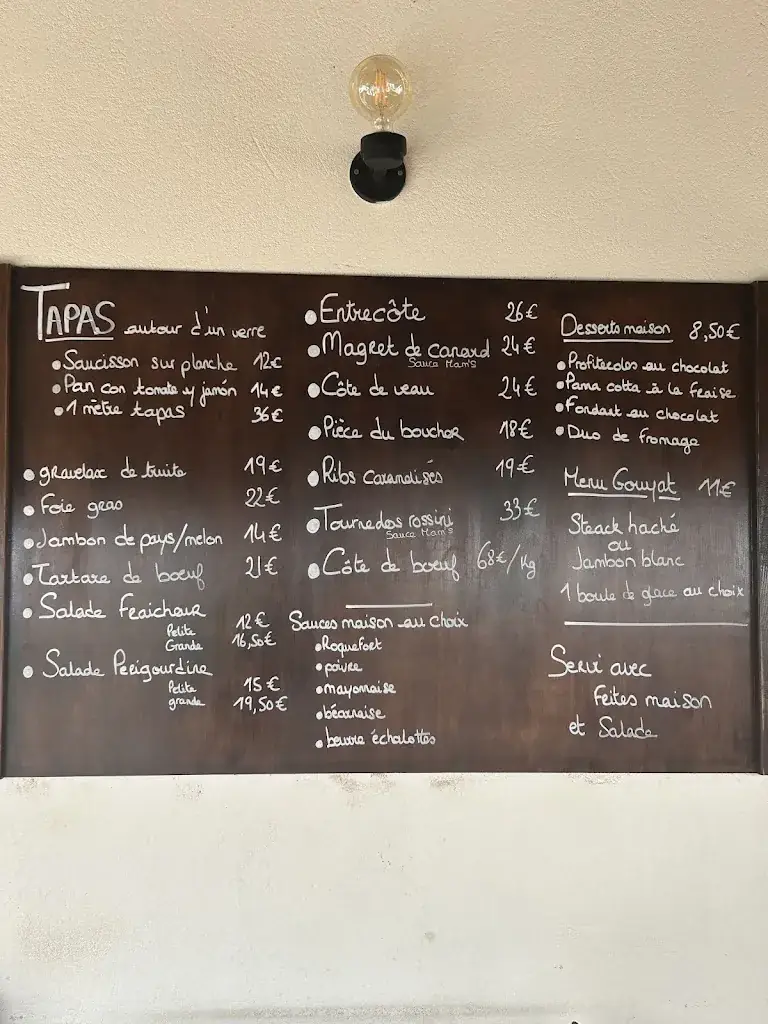 TAPAS autour d'un verre
• Saucisson sur planche 12€
• Pan con tomate y jamón 14€
• 1 mètre tapas 36€
• gravelax de truite 19€
• Foie gras 22€
• Jambon de pays/melon 14€
• Tartare de boeuf 21€
• Salade Fraicheur
Petite 12€
Grande 16,50€
• Salade Perigourdine
Petite 15€
grande 19,50€
• Entrecôte 26€
• Magret de canard 24€
Sauce Mam's
• Côte de veau 24€
• Pièce du boucher 18€
• Ribs Caramélisés 19€
• Tournedos rossini 33€
Sauce Mam's
• Côte de boeuf 68€/Kg
Sauces maison au choix
• Roquefort
• poivre
• mayonnaise
• béarnaise
• beurre échalottes
Desserts maison 8,50€
• Profiteroles au chocolat
• Pana cotta à la fraise
• Fondant au chocolat
• Duo de fromage
Menu Gouyat 11€
Steack haché
ou
Jambon blanc
1 boule de glace au choix
Servi avec
Frites maison
et Salade